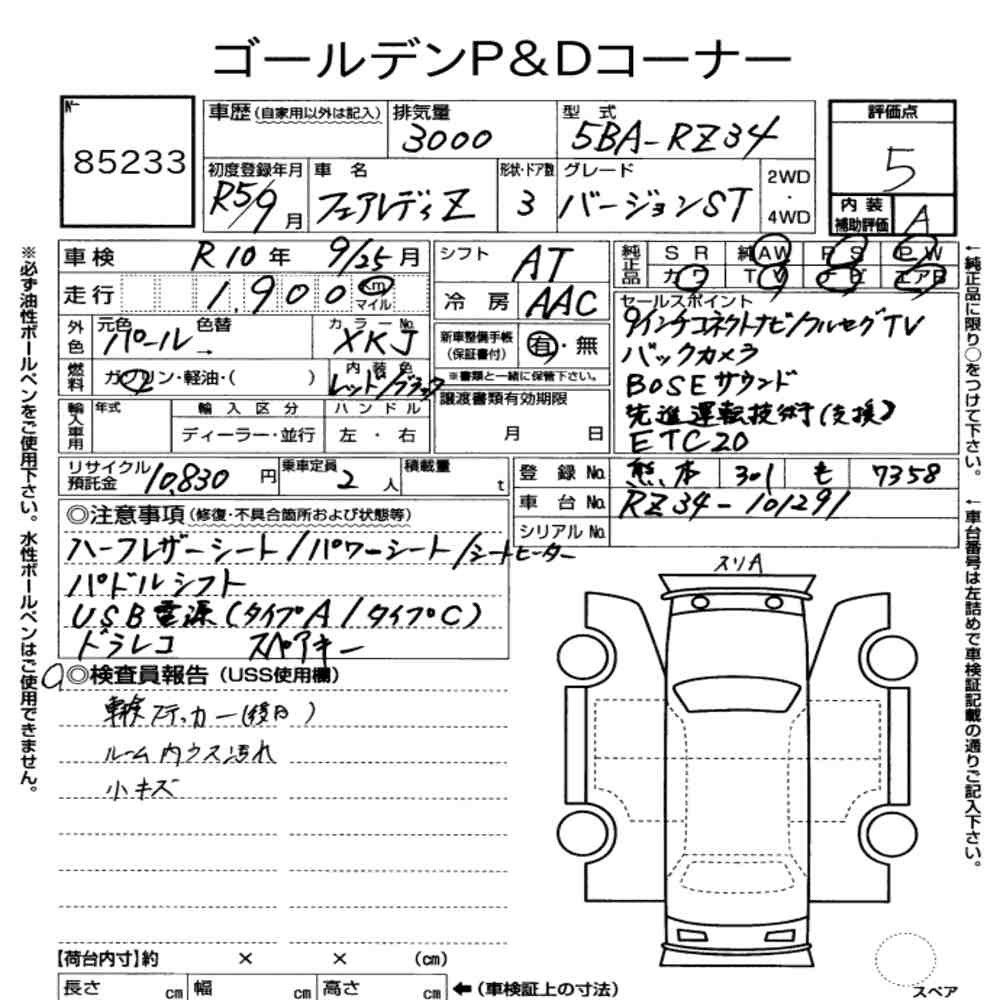 ゴールデンP&Dコーナー
No
85233
車歴(自家用以外は記入)
排気量
3000
型式
5BA-RZ34
評価点
5
初度登録年月
R5/9月
車名
フェアレディZ
形状・ドア数
3
グレード
バージョンST
2WD
・
4WD
内装
補助評価
A
車検 R10年 9/25月
シフト AT
純正品
SR 純AW PS PW
カワ TV ナビ エアB
走行 1,900 km
マイル
冷房 AAC
セールスポイント
9インチコネクトナビ/フルセグTV
バックカメラ
BOSEサウンド
先進運転技術(支援)
ETC20
外色
元色 パール
色替 →
カラーNo. XKJ
新車整備手帳
(保証書付)
有・無
※書類と一緒に保管下さい。
燃料
ガソリン・軽油・( )
内装色
レッド/ブラック
輸入車用
年式
輸入区分
ハンドル
ディーラー・並行
左・右
譲渡書類有効期限
月 日
リサイクル
預託金
10,830円
乗車定員
2人
積載量
t
登録No. 熊本 301 も 7358
車台No. RZ34-101291
シリアルNo.
◎注意事項(修復・不具合箇所および状態等)
ハーフレザーシート/パワーシート/シートヒーター
パドルシフト
USB電源(タイプA/タイプC)
ドラレコ スペアキー
◎検査員報告(USS使用欄)
車検ステッカー(後日)
ルーム内ウス汚れ
小キズ
スリA
【荷台内寸】約 × × (cm)
長さ cm 幅 cm 高さ cm ←(車検証上の寸法)
スペア
※必ず油性ボールペンをご使用下さい。水性ボールペンはご使用できません。
←純正品に限り○をつけて下さい。
←車台番号は左詰めで車検証記載の通りご記入下さい。